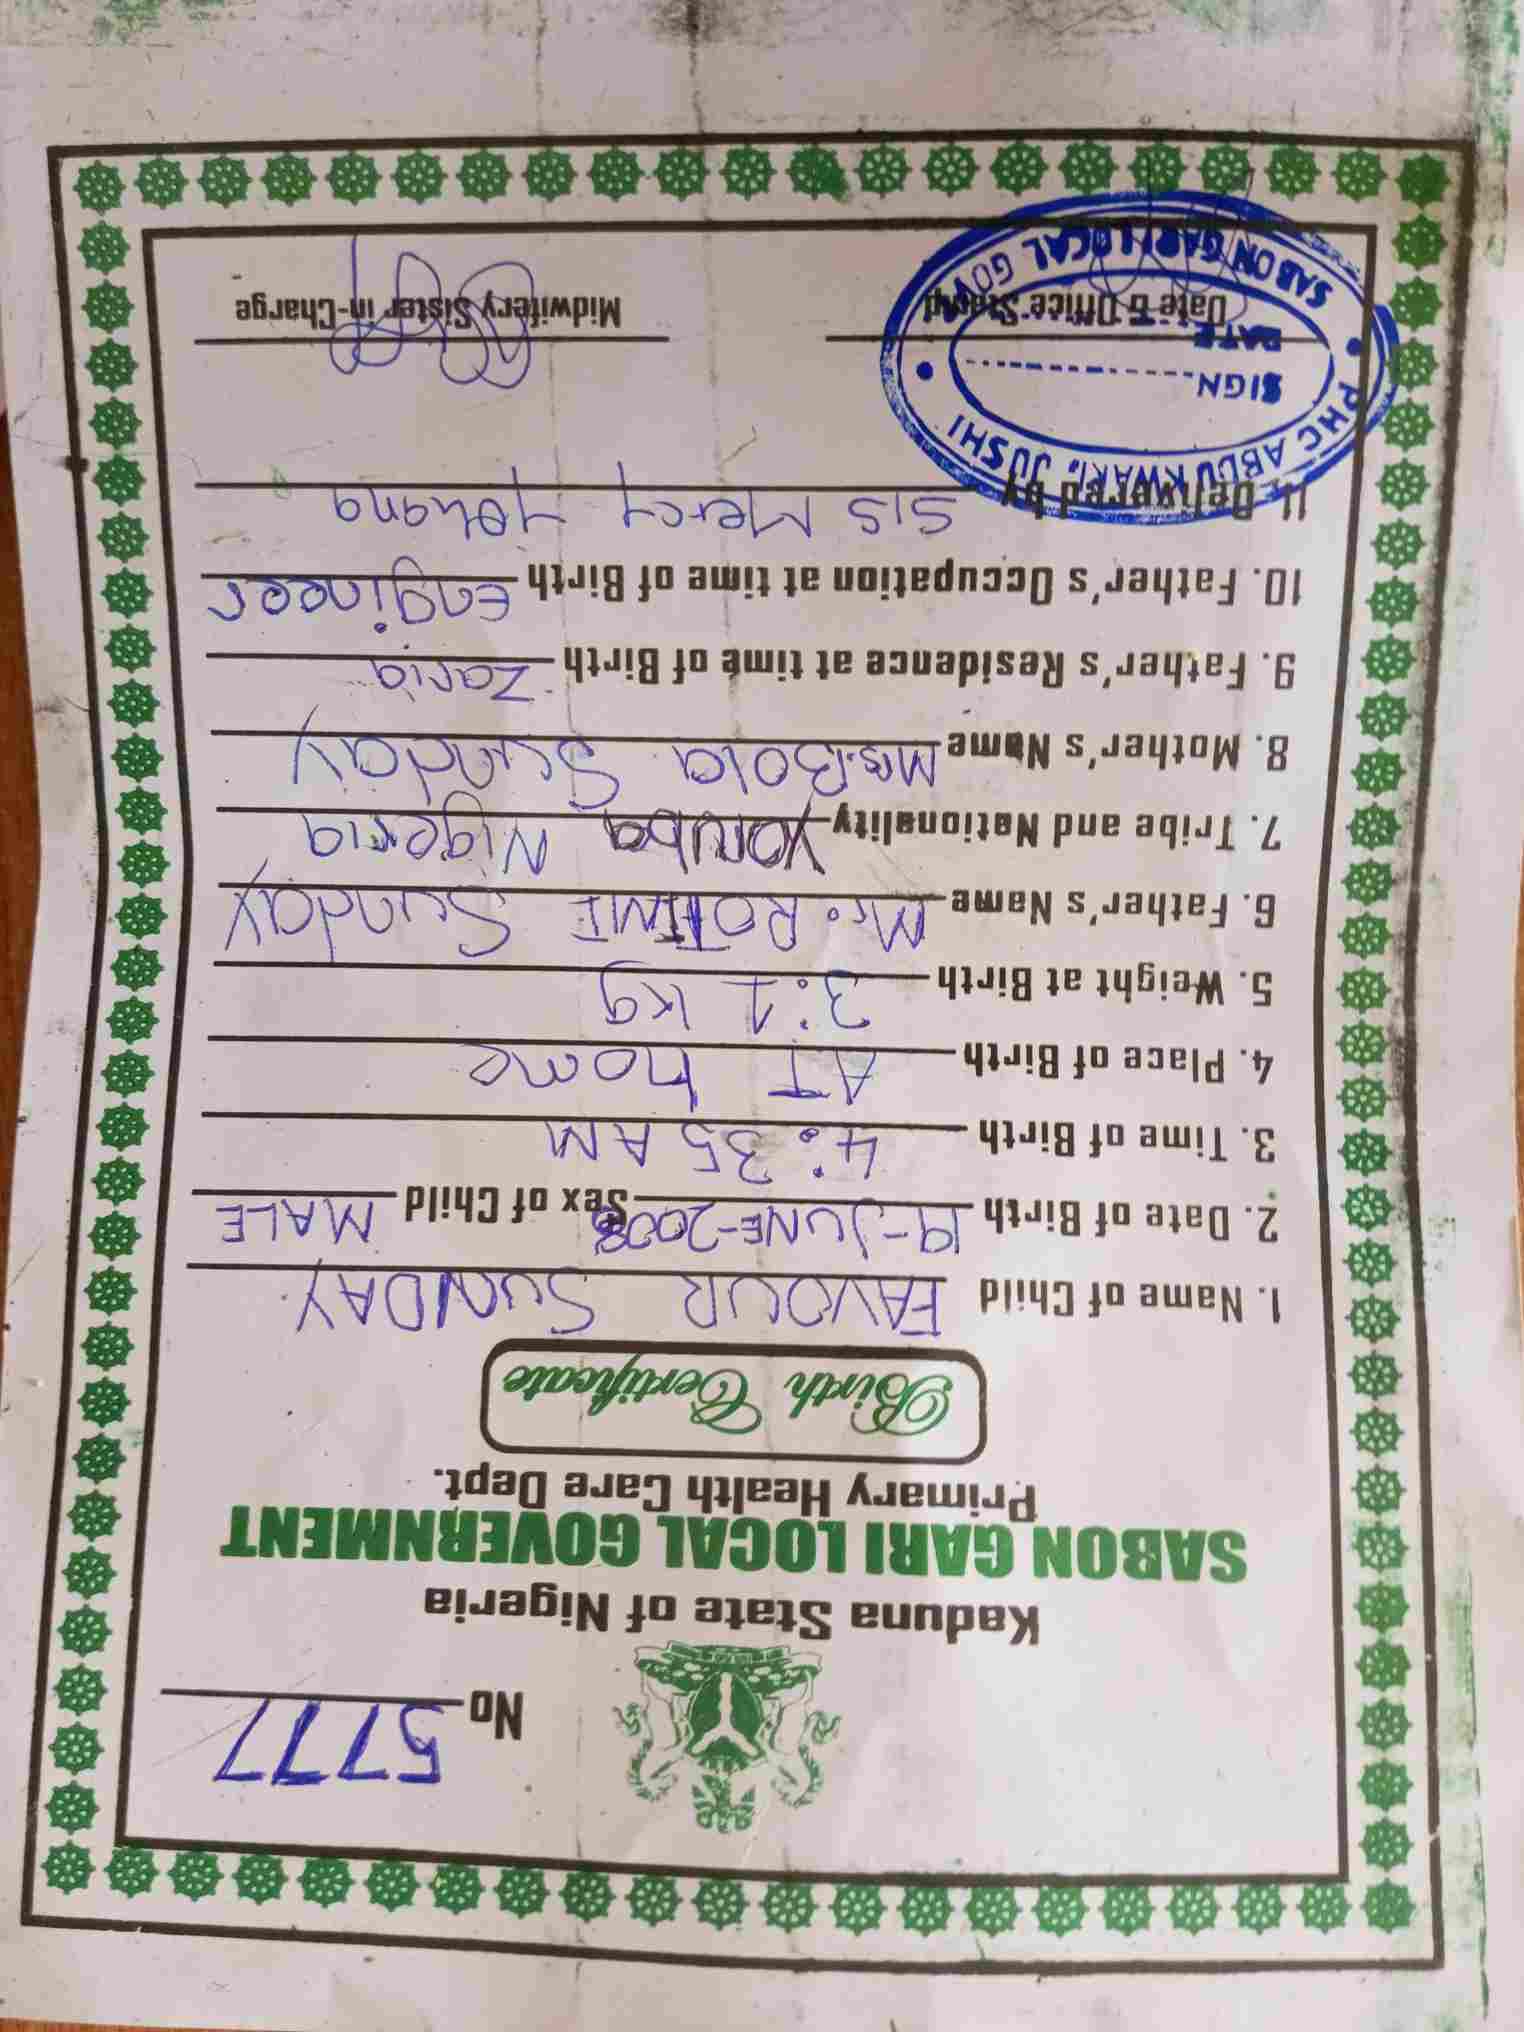 No 5777
Kaduna State of Nigeria
SABON GARI LOCAL GOVERNMENT
Primary Health Care Dept.
Birth Certificate
1. Name of Child FAVOUR SUNDAY
2. Date of Birth 19-JUNE-2008 Sex of Child MALE
3. Time of Birth 4:35AM
4. Place of Birth AT home
5. Weight at Birth 3:1 kg
6. Father's Name Mr. ROTIMI Sunday
7. Tribe and Nationality Yoruba Nigeria
8. Mother's Name Mrs. Bola Sunday
9. Father's Residence at time of Birth Zaria
10. Father's Occupation at time of Birth Engineer
11. Delivered by SIS Mercy Yohana
PHC ABDU KWARI, JUSHI
SIGN
DATE
SABON GARI LOCAL GOV
Date & Office Stamp
Midwifery Sister in-Charge